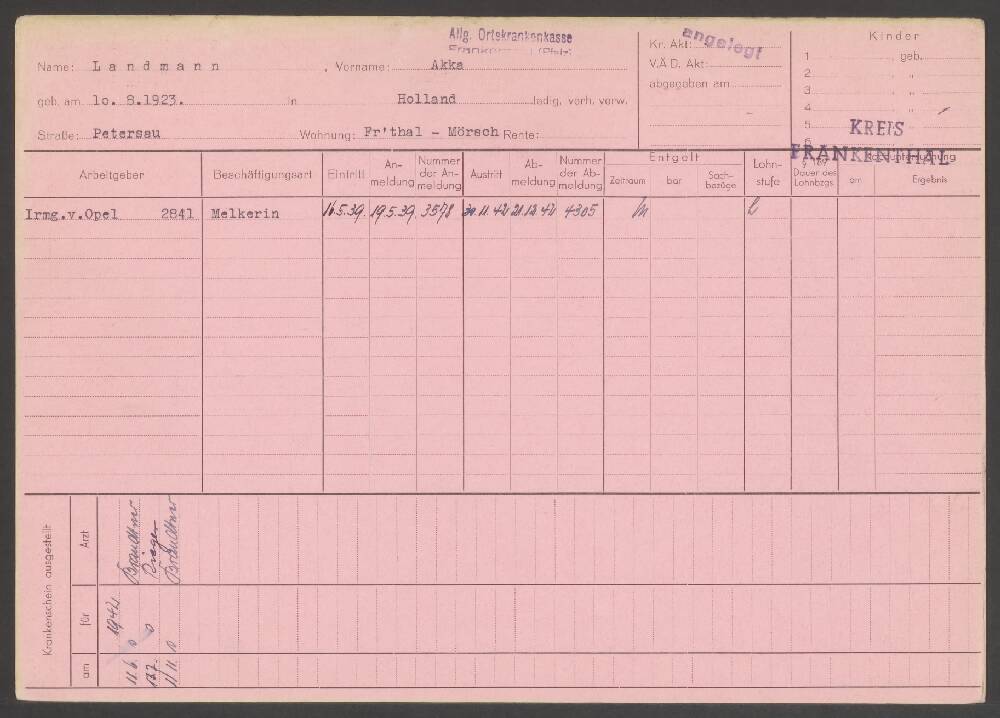 Allg. Ortskrankenkasse
Name: Landmann , Vorname: Akka
geb. am 10. 8.1923. in Holland ledig, verh. verw.
Straße: Petersau Wohnung: Fr'thal - Mörsch Rente:
Kr. Akt: angelegt
V.Ä.D. Akt:
abgegeben am
Kinder
1 geb.
2 " "
3 " "
4 " "
5
KREIS
FRANKENTHAL
Arbeitgeber Beschäftigungsart Eintritt An-meldung Nummer der An-meldung Austritt Ab-meldung Nummer der Ab-meldung Entgelt Zeitraum bar Sach-bezüge Lohn-stufe Dauer des Lohnbzgs. am Ergebnis
Irmg.v.Opel 2841 Melkerin 16.5.39. 19.5.39. 3578 30.11.42 21.12.42 4305
Krankenschein ausgestellt
Arzt
für 1942 0 0
am 11.6. 13.7. 11.11. 0